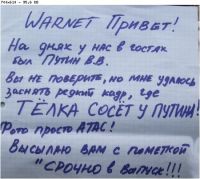 WARNET ПРИВЕТ!
На днях у нас в гостях
был ПУТИН В.В.
Вы не поверите, но мне удалось
заснять редкий кадр, где
ТЁЛКА СОСЁТ У ПУТИНА!
Фото просто АТАС!
Высылаю вам с пометкой
"СРОЧНО в выпуск!!!